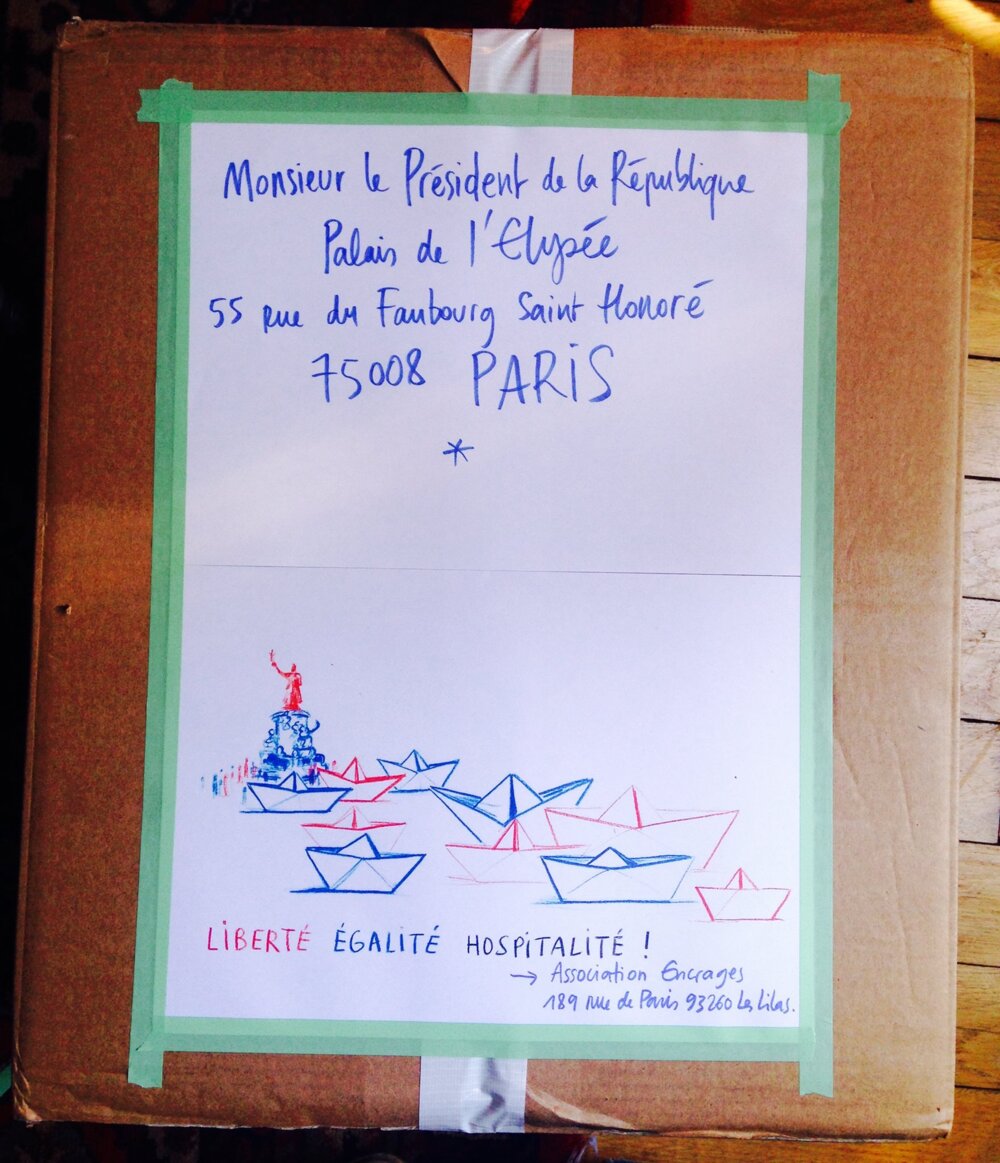 Monsieur le Président de la République
Palais de l'Elysée
55 rue du Faubourg Saint Honoré
75008 PARiS
*
LiBERTÉ ÉGALiTÉ HOSPiTALiTÉ !
→ Association Encrages
189 rue de Paris 93260 Les Lilas.